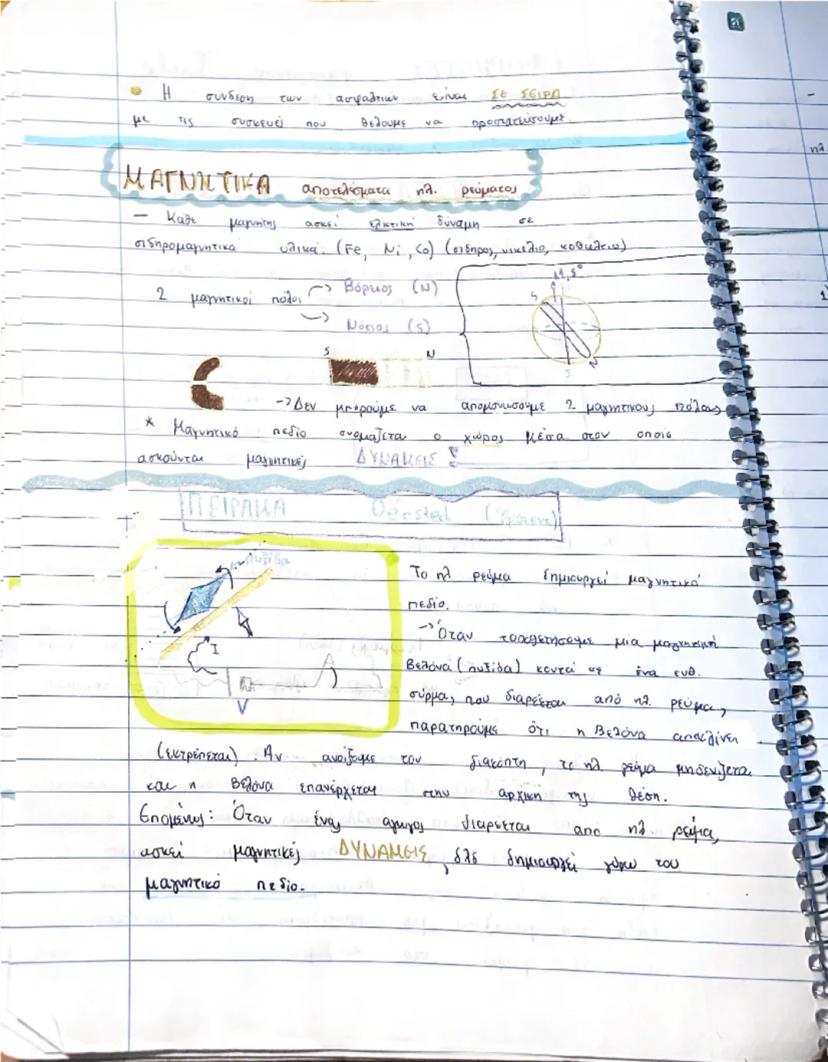 • Η σύνδεση των ασφαλειών είναι ΣΕ ΣΕΙΡΑ
με τις συσκευές που θέλουμε να προστατεύσουμε.
ΜΑΓΝΗΤΙΚΑ αποτελέσματα ηλ. ρεύματος
– Κάθε μαγνήτης ασκεί ελκτική δύναμη σε
σιδηρομαγνητικά υλικά. (Fe, Ni, Co) (σίδηρος, νικέλιο, κοβάλτιο)
2 μαγνητικοί πόλοι → Βόρειος (N)
→ Νότιος (S)
11,5°
S
N
S
S N
→ Δεν μπορούμε να απομονώσουμε 2 μαγνητικούς πόλους
* Μαγνητικό πεδίο ονομάζεται ο χώρος μέσα στον οποίο
ασκούνται μαγνητικές ΔΥΝΑΜΕΙΣ !
ΠΕΙΡΑΜΑ Oersted
πυξίδα
I
V
Το ηλ ρεύμα δημιουργεί μαγνητικό
πεδίο.
→ Όταν τοποθετήσουμε μια μαγνητική
βελόνα (πυξίδα) κοντά σε ένα ευθ.
σύρμα, που διαρέεται από ηλ. ρεύμα,
παρατηρούμε ότι η βελόνα αποκλίνει
(εκτρέπεται). Αν ανοίξουμε τον διακόπτη, το ηλ. ρεύμα μηδενίζεται
και η βελόνα επανέρχεται στην αρχική της θέση.
Επομένως: Όταν ένας αγωγός διαρέεται από ηλ ρεύμα,
ασκεί μαγνητικές ΔΥΝΑΜΕΙΣ, δλδ δημιουργεί γύρω του
μαγνητικό πεδίο.